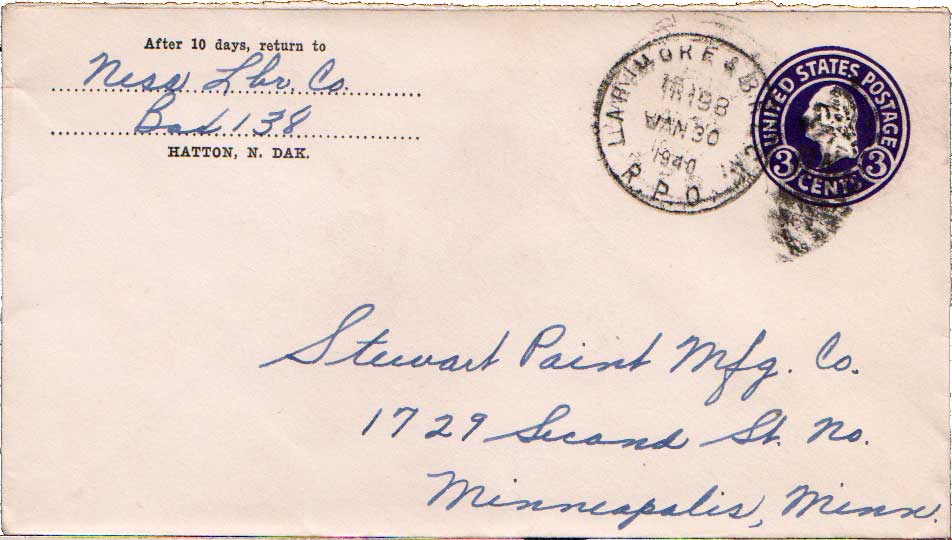 After 10 days, return to
Ness Lbr. Co.
Box 138
HATTON, N. DAK.
LARIMORE & B
TR 198
30
1940
R.P.O.
UNITED STATES POSTAGE
3 CENTS 3
Stewart Paint Mfg. Co.
1729 Second St. No.
Minneapolis, Minn.